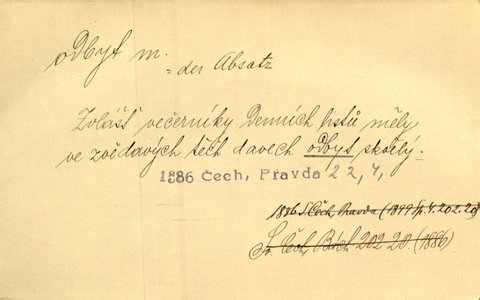 odbyt m.
= der Absatz
Zvlášť večerníky denních listů měly
ve zvědavých těch davech odbyt skvělý.
1886 Čech, Pravda 22, 4,
1886 S. Čech, Pravda (1899) 4. 202. 20)
Sv. Čech, 202 20. (1886)